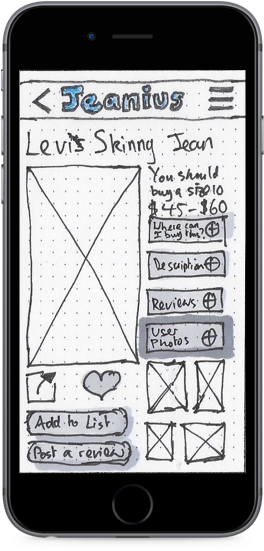 Jeanius
Levi's Skinny Jean
You should
buy a size 10
$45-$60
Where can
I buy this?
Description
Reviews
User
Photos
Add to List
Post a review